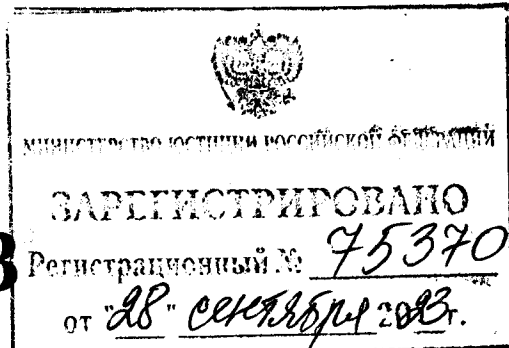 МИНИСТЕРСТВО ЮСТИЦИИ РОССИЙСКОЙ ФЕДЕРАЦИИ
ЗАРЕГИСТРИРОВАНО
Регистрационный № 75370
от "28" сентября 2023г.